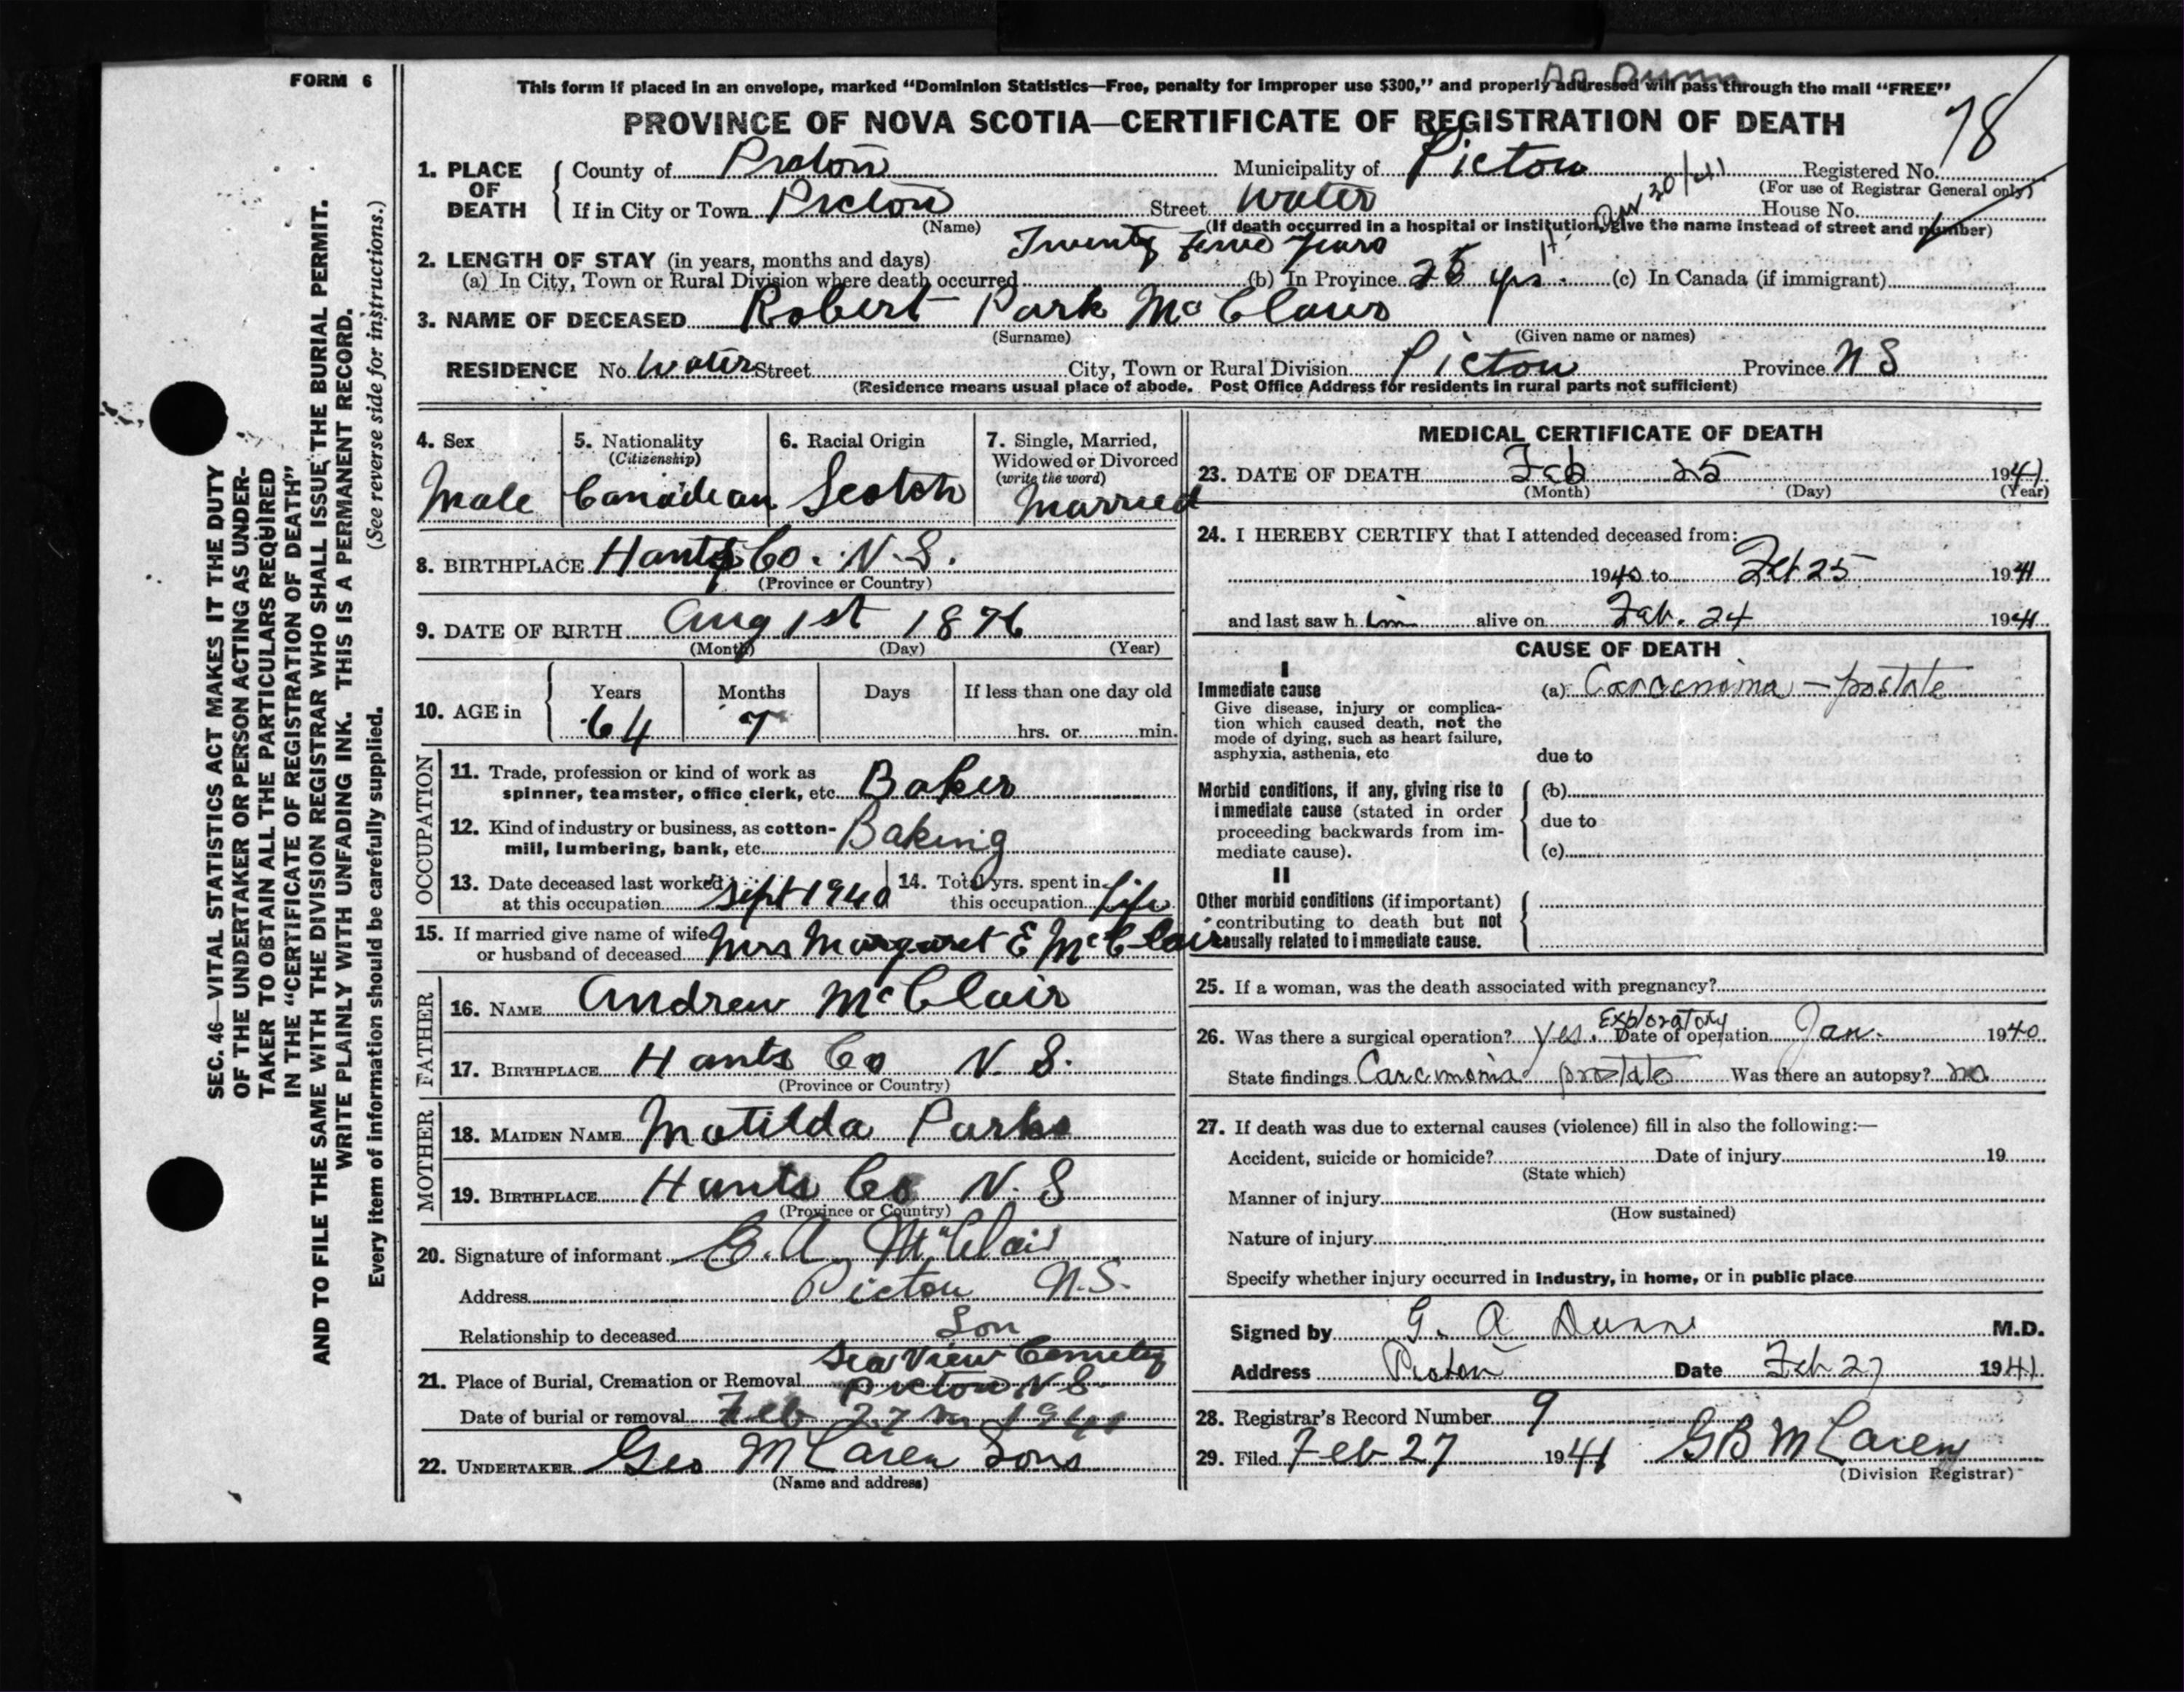 FORM 6
This form if placed in an envelope, marked “Dominion Statistics—Free, penalty for improper use $300,” and properly addressed will pass through the mail “FREE”
Dr Dunn
PROVINCE OF NOVA SCOTIA—CERTIFICATE OF REGISTRATION OF DEATH
78
1. PLACE OF DEATH
County of Pictou Municipality of Pictou Registered No.
(For use of Registrar General only)
If in City or Town Pictou Street Water House No.
(Name) (If death occurred in a hospital or institution, give the name instead of street and number)
2. LENGTH OF STAY (in years, months and days)
(a) In City, Town or Rural Division where death occurred Twenty years (b) In Province yrs. (c) In Canada (if immigrant)
3. NAME OF DECEASED Robert Park McClair
(Surname) (Given name or names)
RESIDENCE No. Water Street City, Town or Rural Division Pictou Province N S
(Residence means usual place of abode. Post Office Address for residents in rural parts not sufficient)
4. Sex
Male
5. Nationality
(Citizenship)
Canadian
6. Racial Origin
Scotch
7. Single, Married,
Widowed or Divorced
(write the word)
Married
8. BIRTHPLACE Hants Co. N.S.
(Province or Country)
9. DATE OF BIRTH Aug 1st 1876
(Month) (Day) (Year)
10. AGE in
Years Months Days If less than one day old
64 7 hrs. or min.
OCCUPATION
11. Trade, profession or kind of work as
spinner, teamster, office clerk, etc. Baker
12. Kind of industry or business, as cotton-
mill, lumbering, bank, etc. Baking
13. Date deceased last worked
at this occupation Sept 1940
14. Total yrs. spent in
this occupation Life
15. If married give name of wife
or husband of deceased Mrs Margaret E McClair
FATHER
16. NAME Andrew McClair
17. BIRTHPLACE Hants Co N.S.
(Province or Country)
MOTHER
18. MAIDEN NAME Matilda Parks
19. BIRTHPLACE Hants Co N.S
(Province or Country)
20. Signature of informant A McClair
Address Pictou N.S.
Relationship to deceased Son
21. Place of Burial, Cremation or Removal Sea View Cemetery
Pictou N S
Date of burial or removal Feb 27 1941
22. UNDERTAKER Geo McLaren Sons
(Name and address)
MEDICAL CERTIFICATE OF DEATH
23. DATE OF DEATH Feb 25 1941
(Month) (Day) (Year)
24. I HEREBY CERTIFY that I attended deceased from:
1940 to Feb 25 1941
and last saw h im alive on Feb. 24 1941
CAUSE OF DEATH
I
Immediate cause
Give disease, injury or complica-
tion which caused death, not the
mode of dying, such as heart failure,
asphyxia, asthenia, etc
(a) Carcinoma – prostate
due to
Morbid conditions, if any, giving rise to
immediate cause (stated in order
proceeding backwards from im-
mediate cause).
(b)
due to
(c)
II
Other morbid conditions (if important)
contributing to death but not
causally related to immediate cause.
25. If a woman, was the death associated with pregnancy?
26. Was there a surgical operation? Yes. Exploratory Date of operation Jan. 1940
State findings Carcinoma prostate Was there an autopsy? no.
27. If death was due to external causes (violence) fill in also the following:—
Accident, suicide or homicide? Date of injury 19
(State which)
Manner of injury
(How sustained)
Nature of injury
Specify whether injury occurred in industry, in home, or in public place
Signed by G. A Dunn M.D.
Address Pictou Date Feb 27 1941
28. Registrar's Record Number 9
29. Filed Feb 27 1941 G B McLaren
(Division Registrar)
SEC. 46—VITAL STATISTICS ACT MAKES IT THE DUTY
OF THE UNDERTAKER OR PERSON ACTING AS UNDER-
TAKER TO OBTAIN ALL THE PARTICULARS REQUIRED
IN THE “CERTIFICATE OF REGISTRATION OF DEATH”
AND TO FILE THE SAME WITH THE DIVISION REGISTRAR WHO SHALL ISSUE THE BURIAL PERMIT.
WRITE PLAINLY WITH UNFADING INK. THIS IS A PERMANENT RECORD.
Every item of information should be carefully supplied. (See reverse side for instructions.)